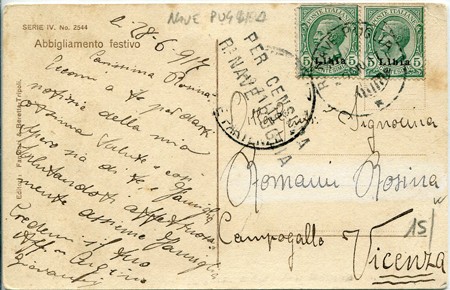 SERIE IV. No. 2544
Abbigliamento festivo
NAVE PUGLIA
li 28-6-917
Carissima Rosina
Eccomi a te per darti
notizie della mia
ottima salute e così
spero sia di te e famiglia
Salutandoti affettuosa
mente assieme famiglia
Credemi il tuo
Aff. Cugino
Giovanni
POSTE ITALIANE
5 Libia 5
POSTE ITALIANE
5 Libia 5
PER CENSURA
R. NAVE PUGLIA
Signorina
Romani Rosina
Campogallo
15
Vicenza